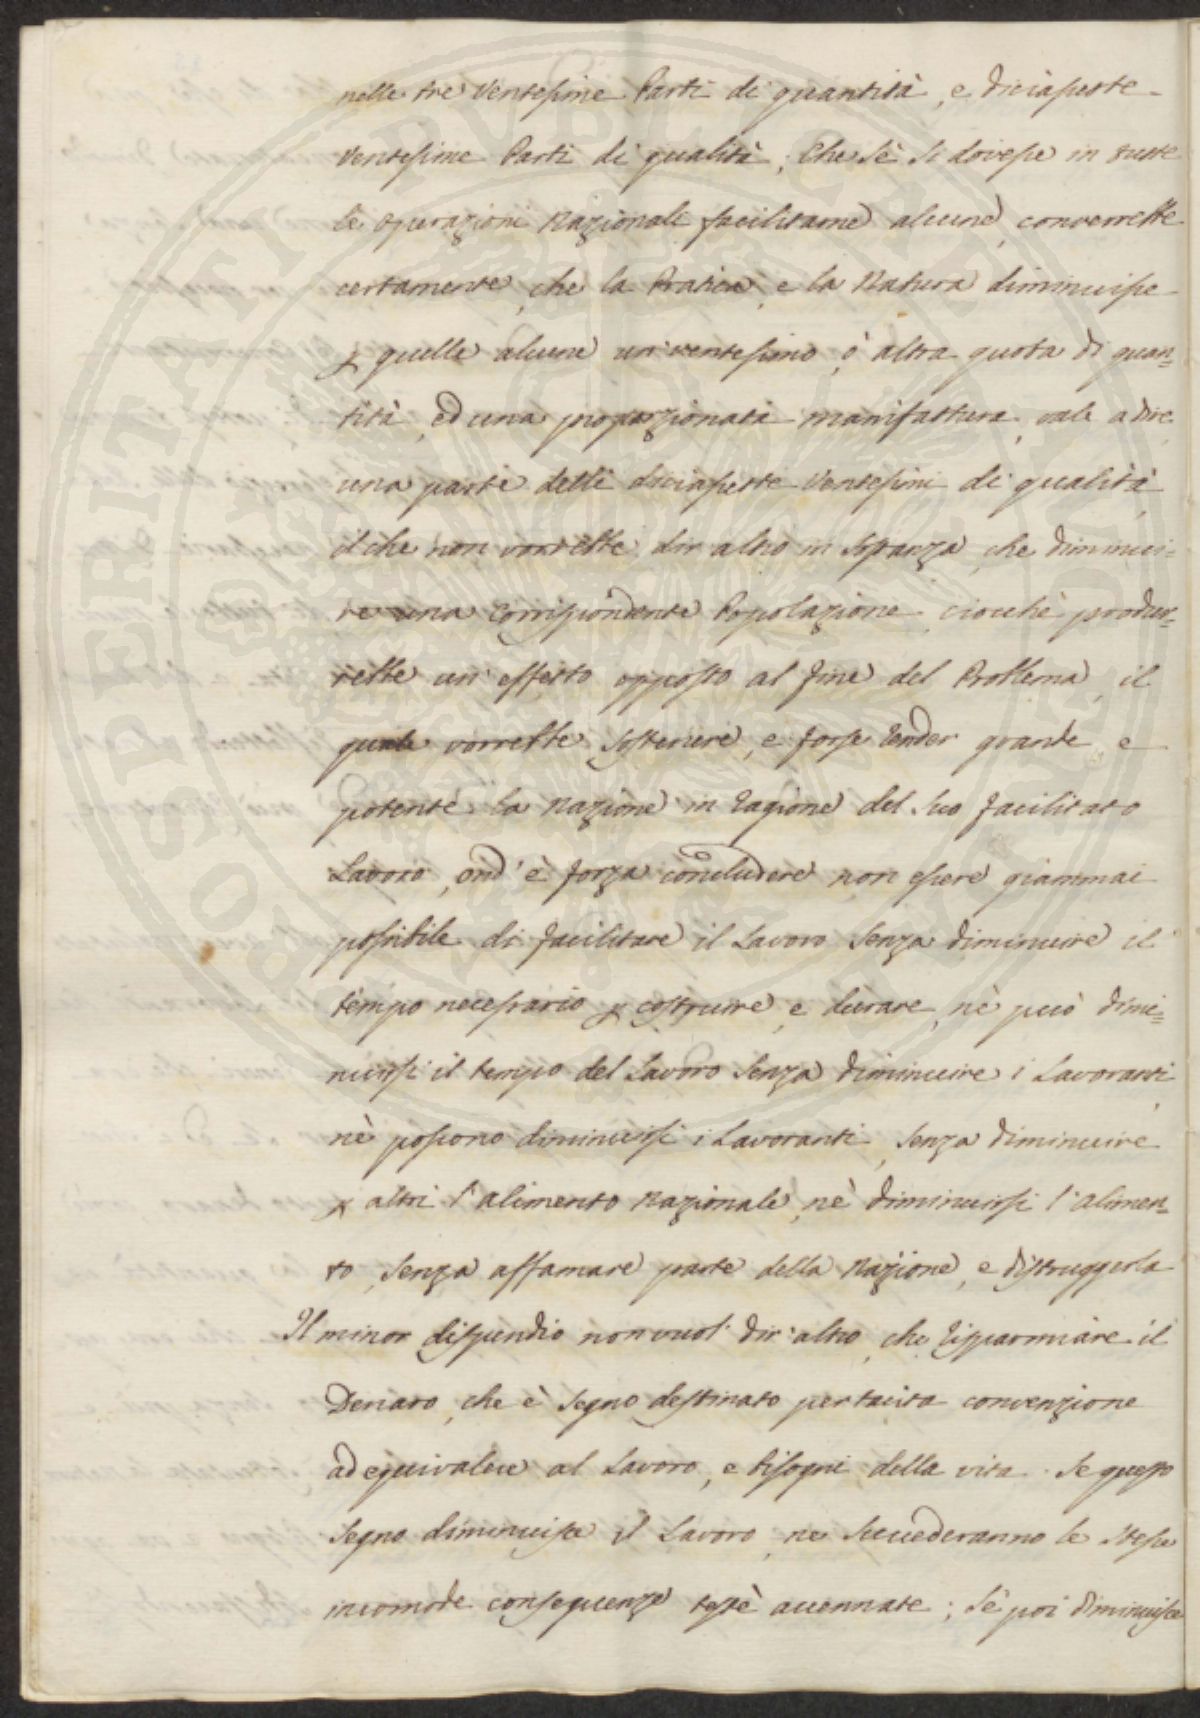 nelle tre Ventesime Parti di quantità, e diciasette
Ventesime Parti di qualità; Che sè si dovesse in tutte
le operazioni Nazionali facilitarne alcune, converrebbe
certamente, che la Pratica, e la Natura diminuisse
p quelle alcune un ventesimo, ò altra quota di quan=
tità, ed una proporzionata manifattura, vale a dire
una parte delli diciasette Ventesimi di qualità,
il che non vorrebbe dir altro in sostanza, che diminui=
re una corrispondente Popolazione, ciocchè produr=
rebbe un effetto opposto al fine del Problema, il
quale vorrebbe sostenere, e forse render grande e
potente la Nazione in ragione del suo facilitato
Lavoro, ond' è forza concludere non essere giammai
possibile di facilitare il Lavoro senza diminuire il
tempo necessario p costruire, e durare, nè può dimi=
nuirsi il tempo del Lavoro senza diminuire i Lavoranti,
nè possono diminuirsi i Lavoranti, senza diminuire
p altri l'alimento Nazionale, nè diminuirsi l'alimen=
to, senza affamare parte della Nazione, e distruggerla
Il minor dispendio non vuol dir altro, che risparmiare il
Denaro, che è segno destinato per tacita convenzione
ad equivalere al Lavoro, e bisogni della vita. Se questo
segno diminuisce il Lavoro, ne succederanno le stesse
incomode conseguenze testè accennate; sè poi diminuisce
POSPERITATI PVBLICAE